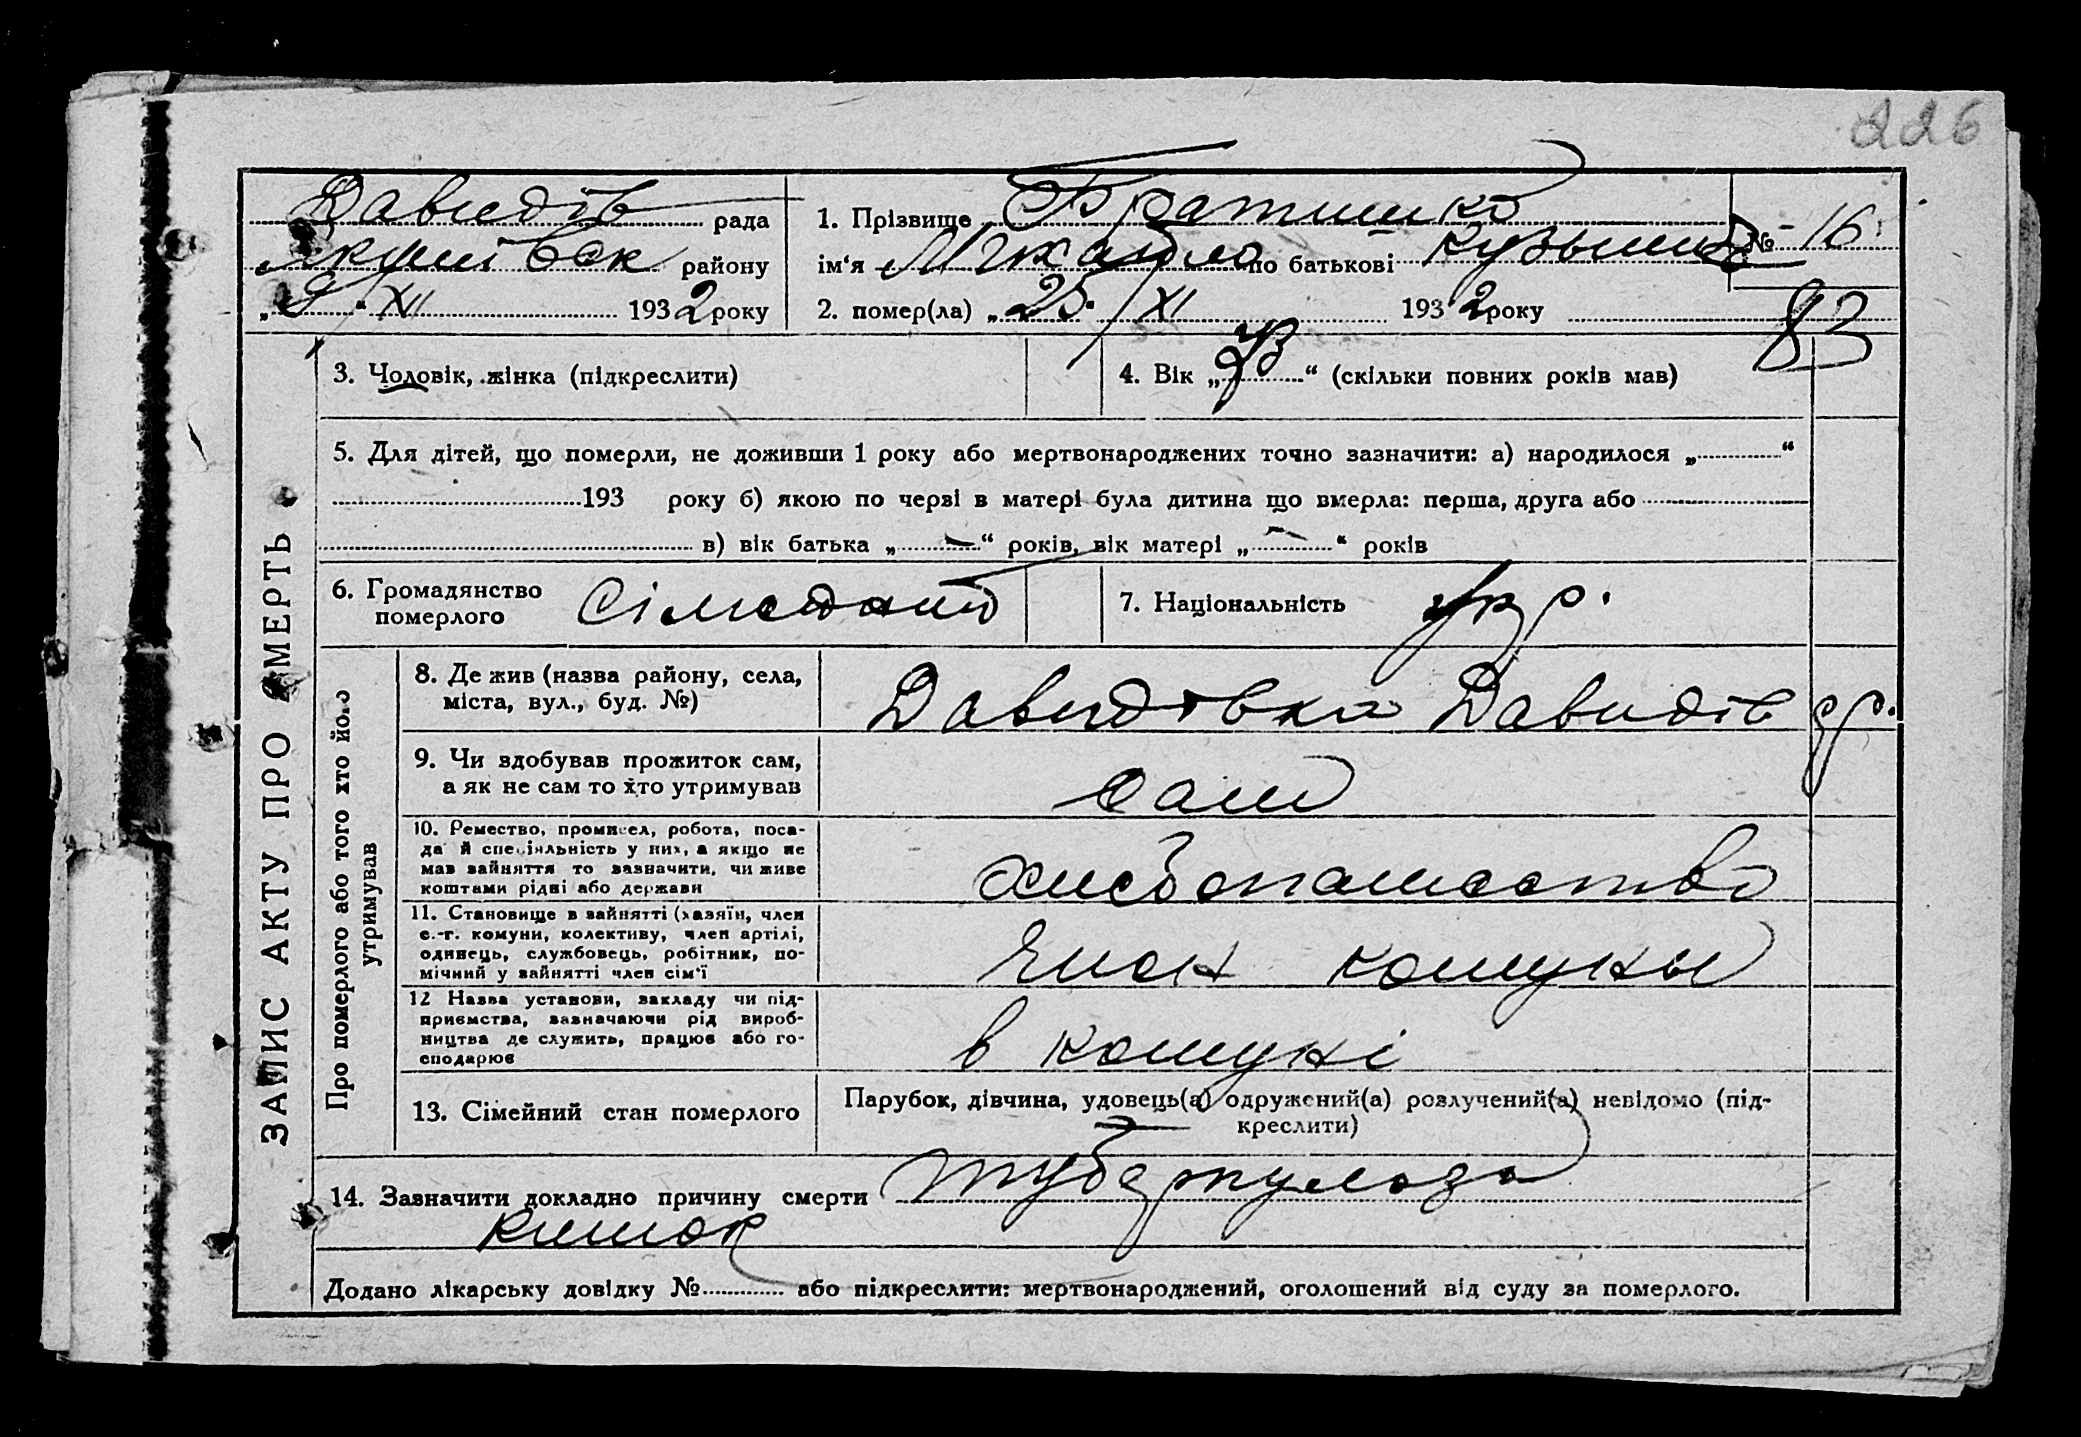 226
Давидів рада
Якимівськ району
„9“ XII 1932 року
1. Прізвище Братишко
ім‘я Михайло по батькові Кузьмич
№ 16
2. помер(ла) „25“ XI 1932 року
83
3. Чоловік, жінка (підкреслити)
4. Вік „73“ (скільки повних років мав)
5. Для дітей, що померли, не доживши 1 року або мертвонароджених точно зазначити: а) народилося „ “
193 року б) якою по черві в матері була дитина що вмерла: перша, друга або
в) вік батька „—“ років, вік матері „—“ років
6. Громадянство
померлого
7. Національність укр.
ЗАПИС АКТУ ПРО СМЕРТЬ
Про померлого або того хто його
утримував
8. Де жив (назва району, села,
міста, вул., буд. №)
Давидовка Давидів
9. Чи здобував прожиток сам,
а як не сам то хто утримував
сам
10. Ремество, промисел, робота, поса-
да й спеціяльність у них, а якщо не
мав зайняття то зазначити, чи живе
коштами рідні або держави
хлебопашество
11. Становище в зайнятті (хазяїн, член
с.-г. комуни, колективу, член артілі,
одинець, службовець, робітник, по-
мічний у зайнятті член сім‘ї
член комуны
12 Назва установи, закладу чи під-
приємства, зазначаючи рід вироб-
ництва де служить, працює або го-
сподарює
в комуні
13. Сімейний стан померлого
Парубок, дівчина, удовець(а) одружений(а) розлучений(а) невідомо (під-
креслити)
14. Зазначити докладно причину смерти туберкулоза
кишок
Додано лікарську довідку № або підкреслити: мертвонароджений, оголошений від суду за померлого.